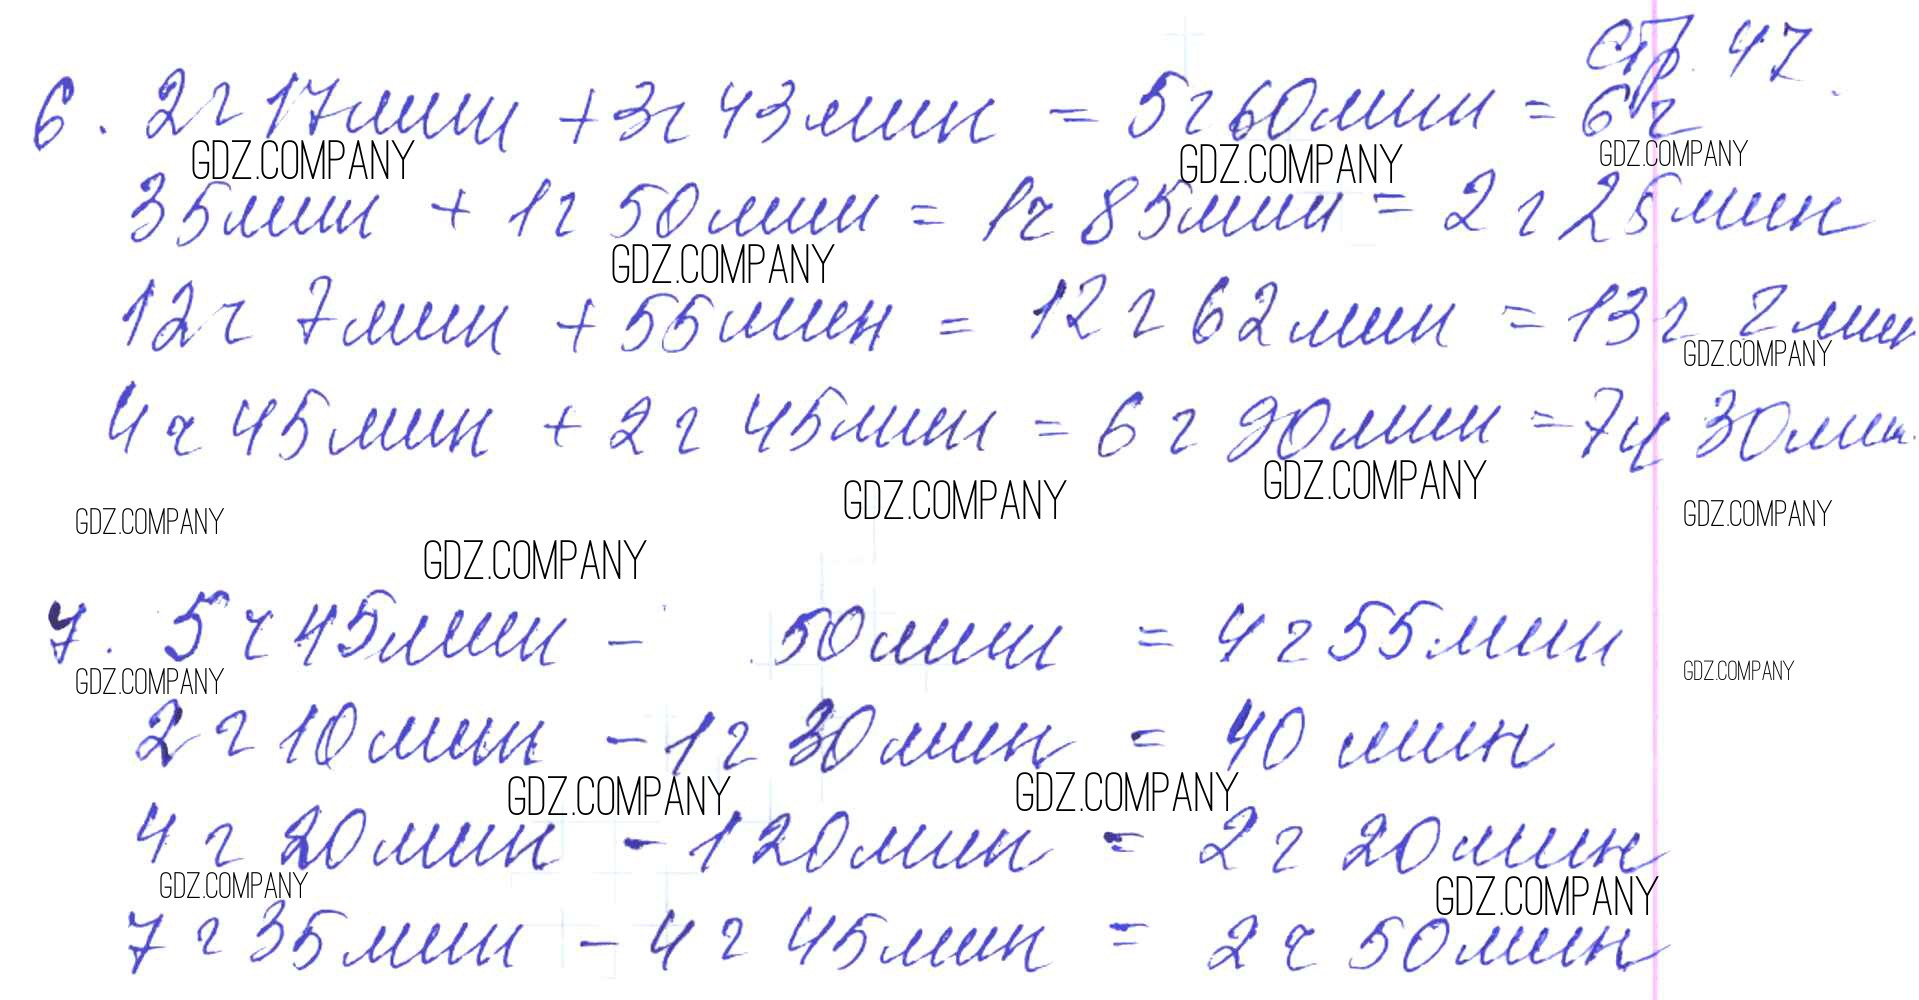 стр. 47.
6. 2ч 17мин + 3ч 43мин = 5ч 60мин = 6ч
GDZ.COMPANY GDZ.COMPANY GDZ.COMPANY
35мин + 1ч 50мин = 1ч 85мин = 2ч 25мин
GDZ.COMPANY
12ч 7мин + 55мин = 12ч 62мин = 13ч 2мин
GDZ.COMPANY
4ч 45мин + 2ч 45мин = 6ч 90мин = 7ч 30мин.
GDZ.COMPANY GDZ.COMPANY
GDZ.COMPANY GDZ.COMPANY
GDZ.COMPANY
7. 5ч 45мин - 50мин = 4ч 55мин
GDZ.COMPANY GDZ.COMPANY
2ч 10мин - 1ч 30мин = 40 мин
GDZ.COMPANY GDZ.COMPANY
4ч 20мин - 120мин = 2ч 20мин
GDZ.COMPANY GDZ.COMPANY
7ч 35мин - 4ч 45мин = 2ч 50мин